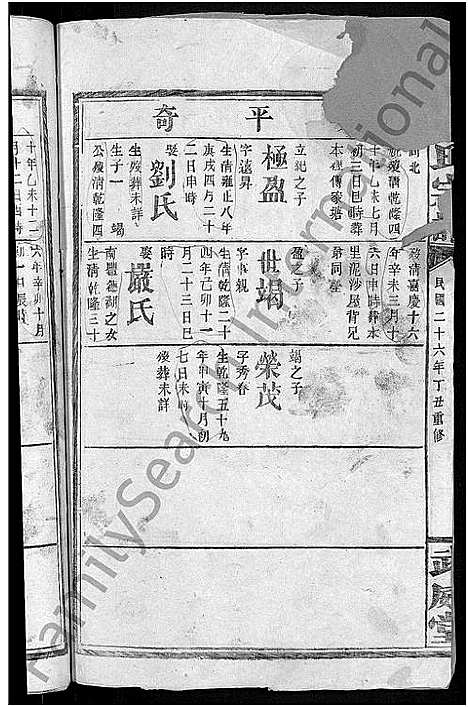 平奇
立紀之子
極盈
字遠昇
生清雍正八年
庚戌四月二十
二日申時
娶劉氏
生歿葬未詳
生子一 竭
公歿清乾隆四
十年乙未七月
初三日巳時葬
盈之子
世竭
字車親
生清乾隆二十
四年己卯十一
月二十三日巳
時
娶嚴氏
南豐德湖之女
生清乾隆三十
六年辛卯十月
歿清嘉慶十六
年辛未三月十
六日申時葬本
里泥沙屋背兄
弟同塋
竭之子
榮茂
字秀春
生乾隆五十九
年甲寅十月初
七日未時
歿葬未詳
民國二十六年丁丑重修
武威堂
FamilySearch International